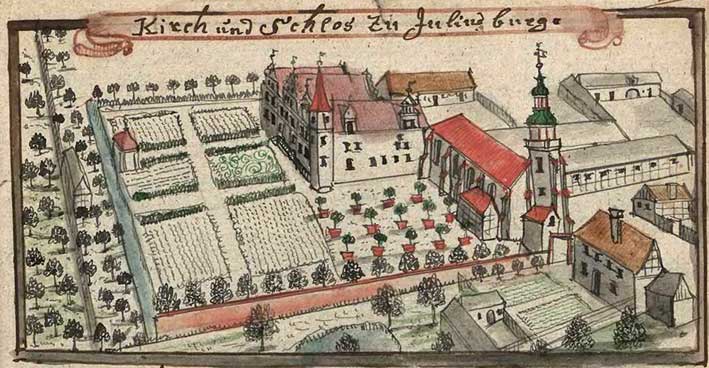 Kirch und Schlos zu Juliusburg.